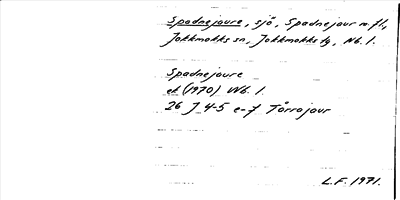 Spadnejaure, sjö, Spadnejaur m.fl.,
Jokkmokks sn, Jokkmokks tg, Nb. l.
Spadnejaure
ek. (1970) Nb. l.
26 J 4-5 e-f Tårrajaur
L.F. 1971.